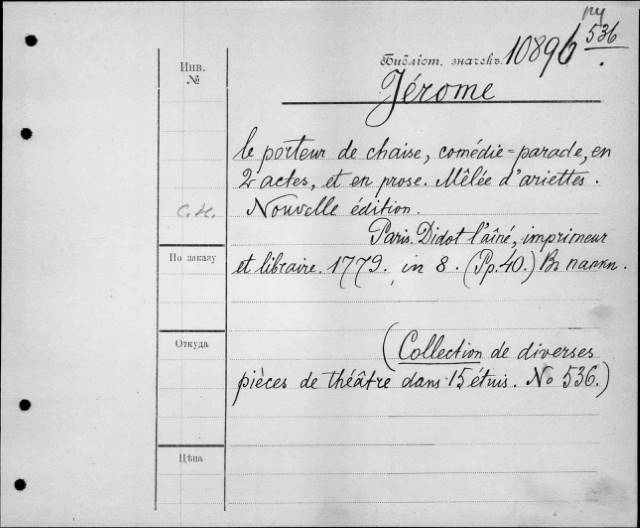 ру
536
Библіот. значекъ. 10896
Инв.
№
Jérome
le porteur de chaise, comédie=parade, en
2 actes, et en prose. Mêlée d'ariettes.
С.К. Nouvelle édition.
Paris. Didot l'aîné, imprimeur
По заказу
et libraire. 1779. in 8. (Pp. 40.) Въ папкѣ.
Откуда
(Collection de diverses
pièces de théâtre dans 15 étuis. No 536.)
Цѣна